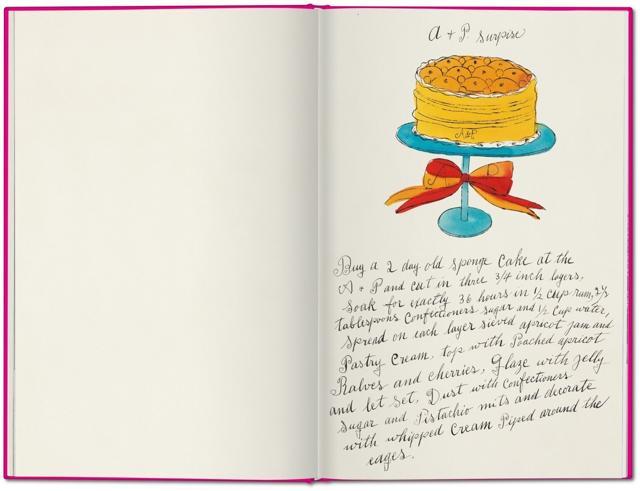 A + P. Surprise
A&P
A P
Buy a 2 day old sponge Cake at the
A + P and cut in three 3/4 inch layers,
Soak for exactly 36 hours in 1/2 cup rum, 2 1/2
tablespoons Confectioners Sugar and 1/2 Cup water,
Spread on each layer sieved apricot jam and
Pastry Cream, top with Poached apricot
Halves and cherries, Glaze with jelly
and let set, Dust with Confectioners
Sugar and Pistachio nuts and decorate
with whipped Cream Piped around the
eages.